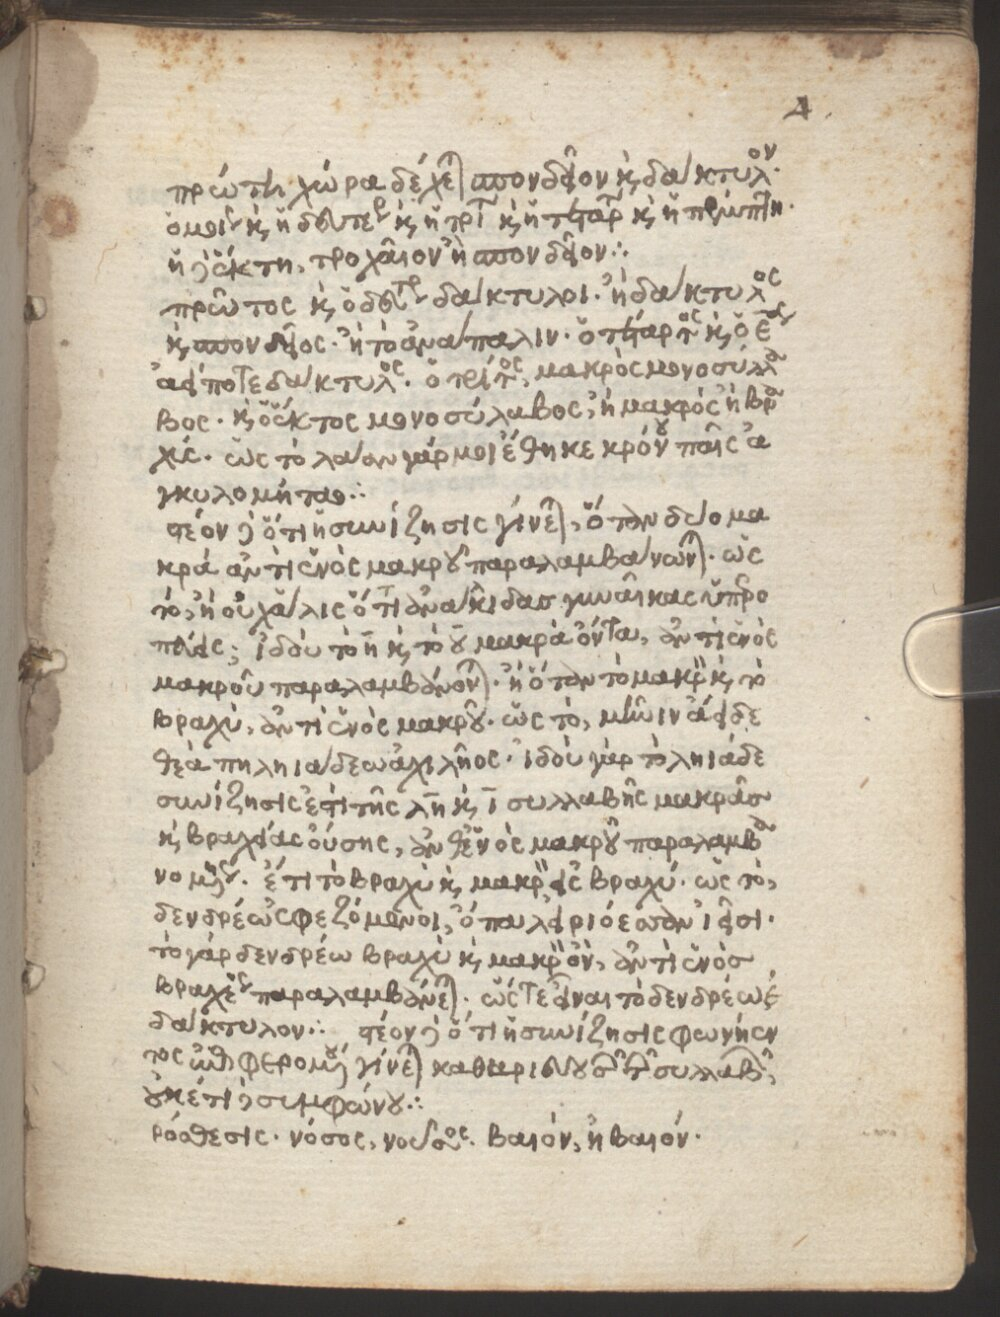 4
πρώτη χώρα δέχεται σπονδεῖον καὶ δάκτυλον.
ὁμοί καὶ ἡ δευτέρ καὶ ἡ τρίτ καὶ ἡ τετάρτ καὶ ἡ πέμπτη.
ἡ δὲ ἕκτη, τροχαῖον ἢ σπονδεῖον:
πρῶτος καὶ ὁ δεύτερ δάκτυλοι. ἢ δάκτυλος
καὶ σπονδεῖος. ἢ τὸ ἀνάπαλιν. ὁ τέταρτος καὶ ὁ
δάκτυλος. ὁ τρίτος, μακρὸς μονοσύλλα
βος. καὶ ὁ ἕκτος μονοσύλαβος, ἢ μακρὸς ἢ βρα
χύς. ὡς τὸ λᾶαν γάρ μοι ἔθηκε κρόνου παῖς ἀ
γκυλομήταο:
τέον δὲ ὅτι ἡ συνίζησις γίνεται, ὅταν δύο μα
κρὰ ἀντὶ ἑνὸς μακροῦ παραλαμβάνωνται. ὡς
τὸ, ἢ οὐχ ἅλις ὅτι γυναῖκας ὑπρο
ἰδοὺ τὸ η καὶ τὸ ου μακρὰ ὄντα, ἀντὶ ἑνὸς
μακροῦ παραλαμβάνονται. ἢ ὅταν τὸ μακρὸν καὶ τὸ
βραχὺ, ἀντὶ ἑνὸς μακροῦ. ὡς τὸ, μῆνιν ἄειδε
θεὰ πηληιάδεω ἀχιλῆος. ἰδοὺ γὰρ τὸ ληιάδε
συνίζησις ἐπὶ τῆς λη καὶ ι συλλαβῆς μακρᾶς
καὶ βραχείας οὔσης, ἀνθ' ἑνὸς μακροῦ παραλαμβα
νομεν. ἔτι τὸ βραχὺ καὶ μακρὸν εἰς βραχύ. ὡς τὸ,
δενδρέω ἐφεζόμενοι, ὄπα λειριόεσσαν ἱεῖσι.
τὸ γὰρ δενδρέω βραχὺ καὶ μακρὸν ὂν, ἀντὶ ἑνὸς
βραχέος παραλαμβάνεται. ὥστε εἶναι τὸ δενδρέω ἐ
δάκτυλον: τέον δὲ ὅτι ἡ συνίζησις φωνήεν
τος γίνεται συλλαβ,
οὐκέτι δὲ συμφώνου:
ρόσθεσις. νόσος, νοῦσος. βαιόν, ἠβαιόν.